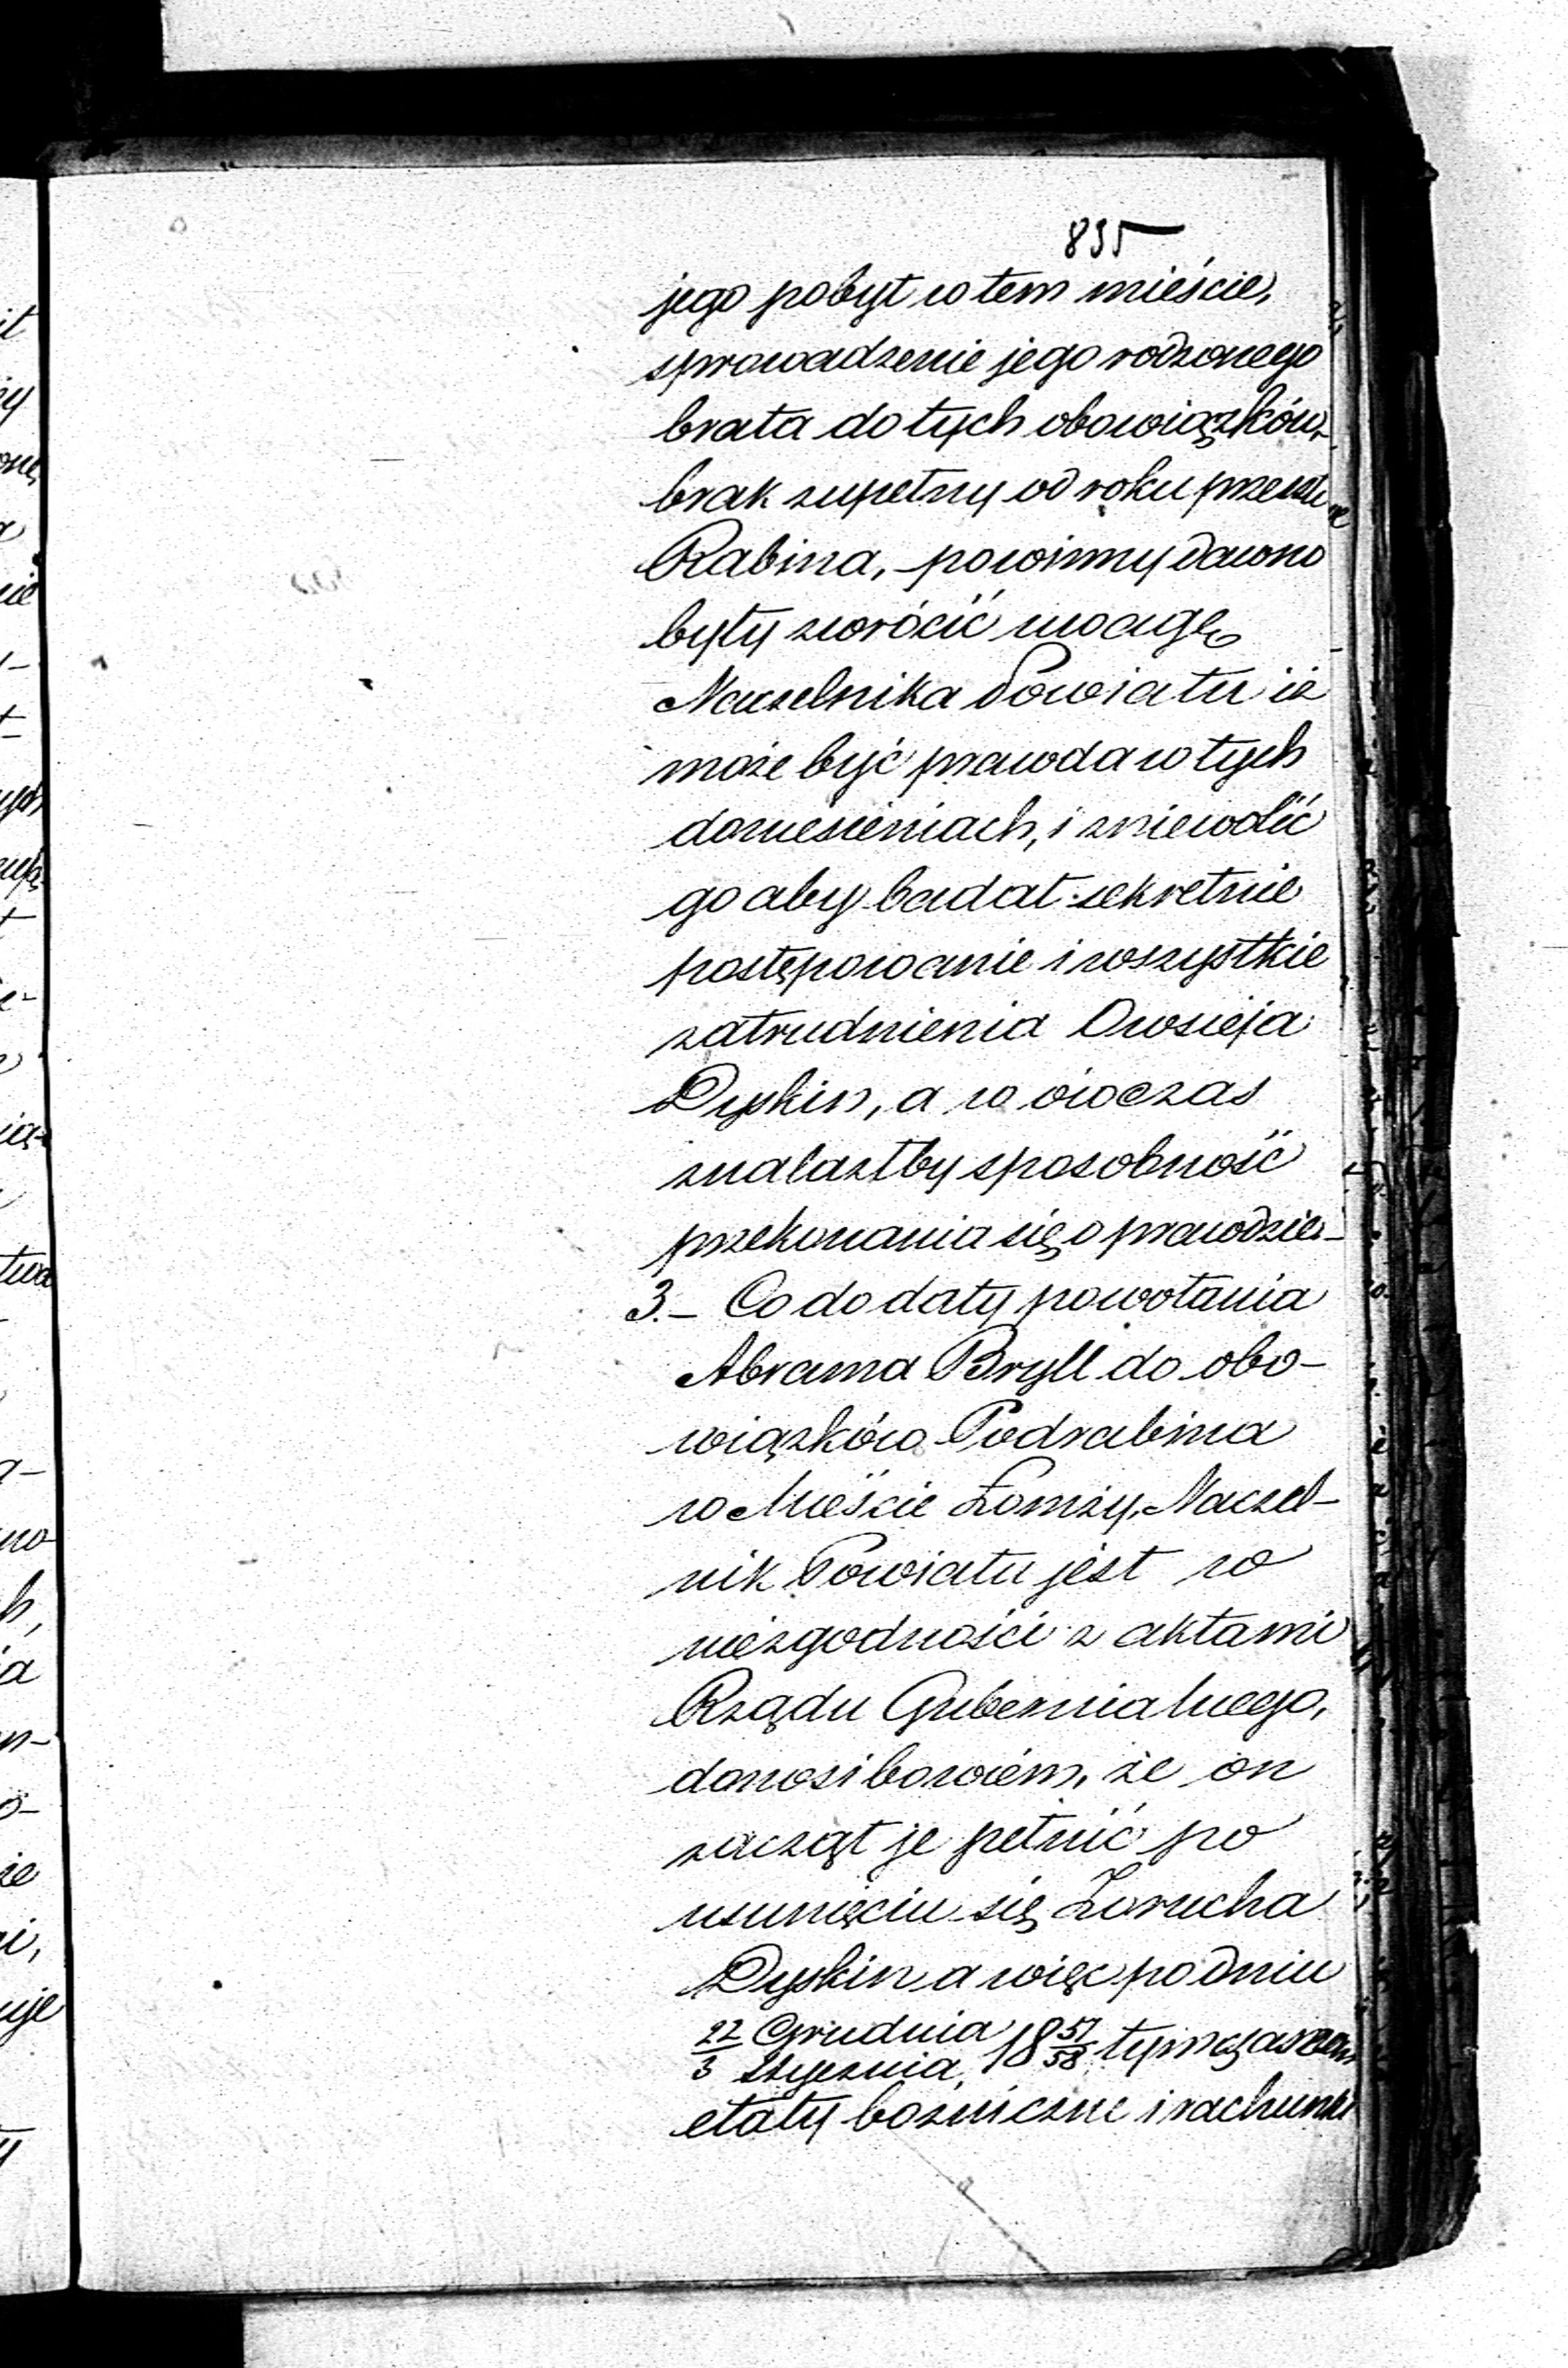 835
jego pobyt w tem mieście,
sprowadzenie jego rodzonego
brata do tych obowiązków,
brak zupełny od roku przeszło
Rabina, powinny dawno
były zwrócić uwagę
Naczelnika Powiatu iż
może być prawda w tych
doniesieniach, i zniewolić
go aby badał sekretnie
postępowanie i wszystkie
zatrudnienia Owsieja
Dyskin, a w ówczas
znalazłby sposobność
przekonania się o prawdzie.
3.– Co do daty powołania
Abrama Bryll do obo–
wiązków Podrabina
w Mieście Łomży, Naczel–
nik Powiatu jest w
niezgodności z aktami
Rządu Gubernialnego,
donosi bowiem, że on
zaczął je pełnić po
usunięciu się Zorucha
Dyskin a więc po dniu
22/3 Grudnia/Stycznia, 18 57/58 tymczasem
etaty bożnicze i rachunki